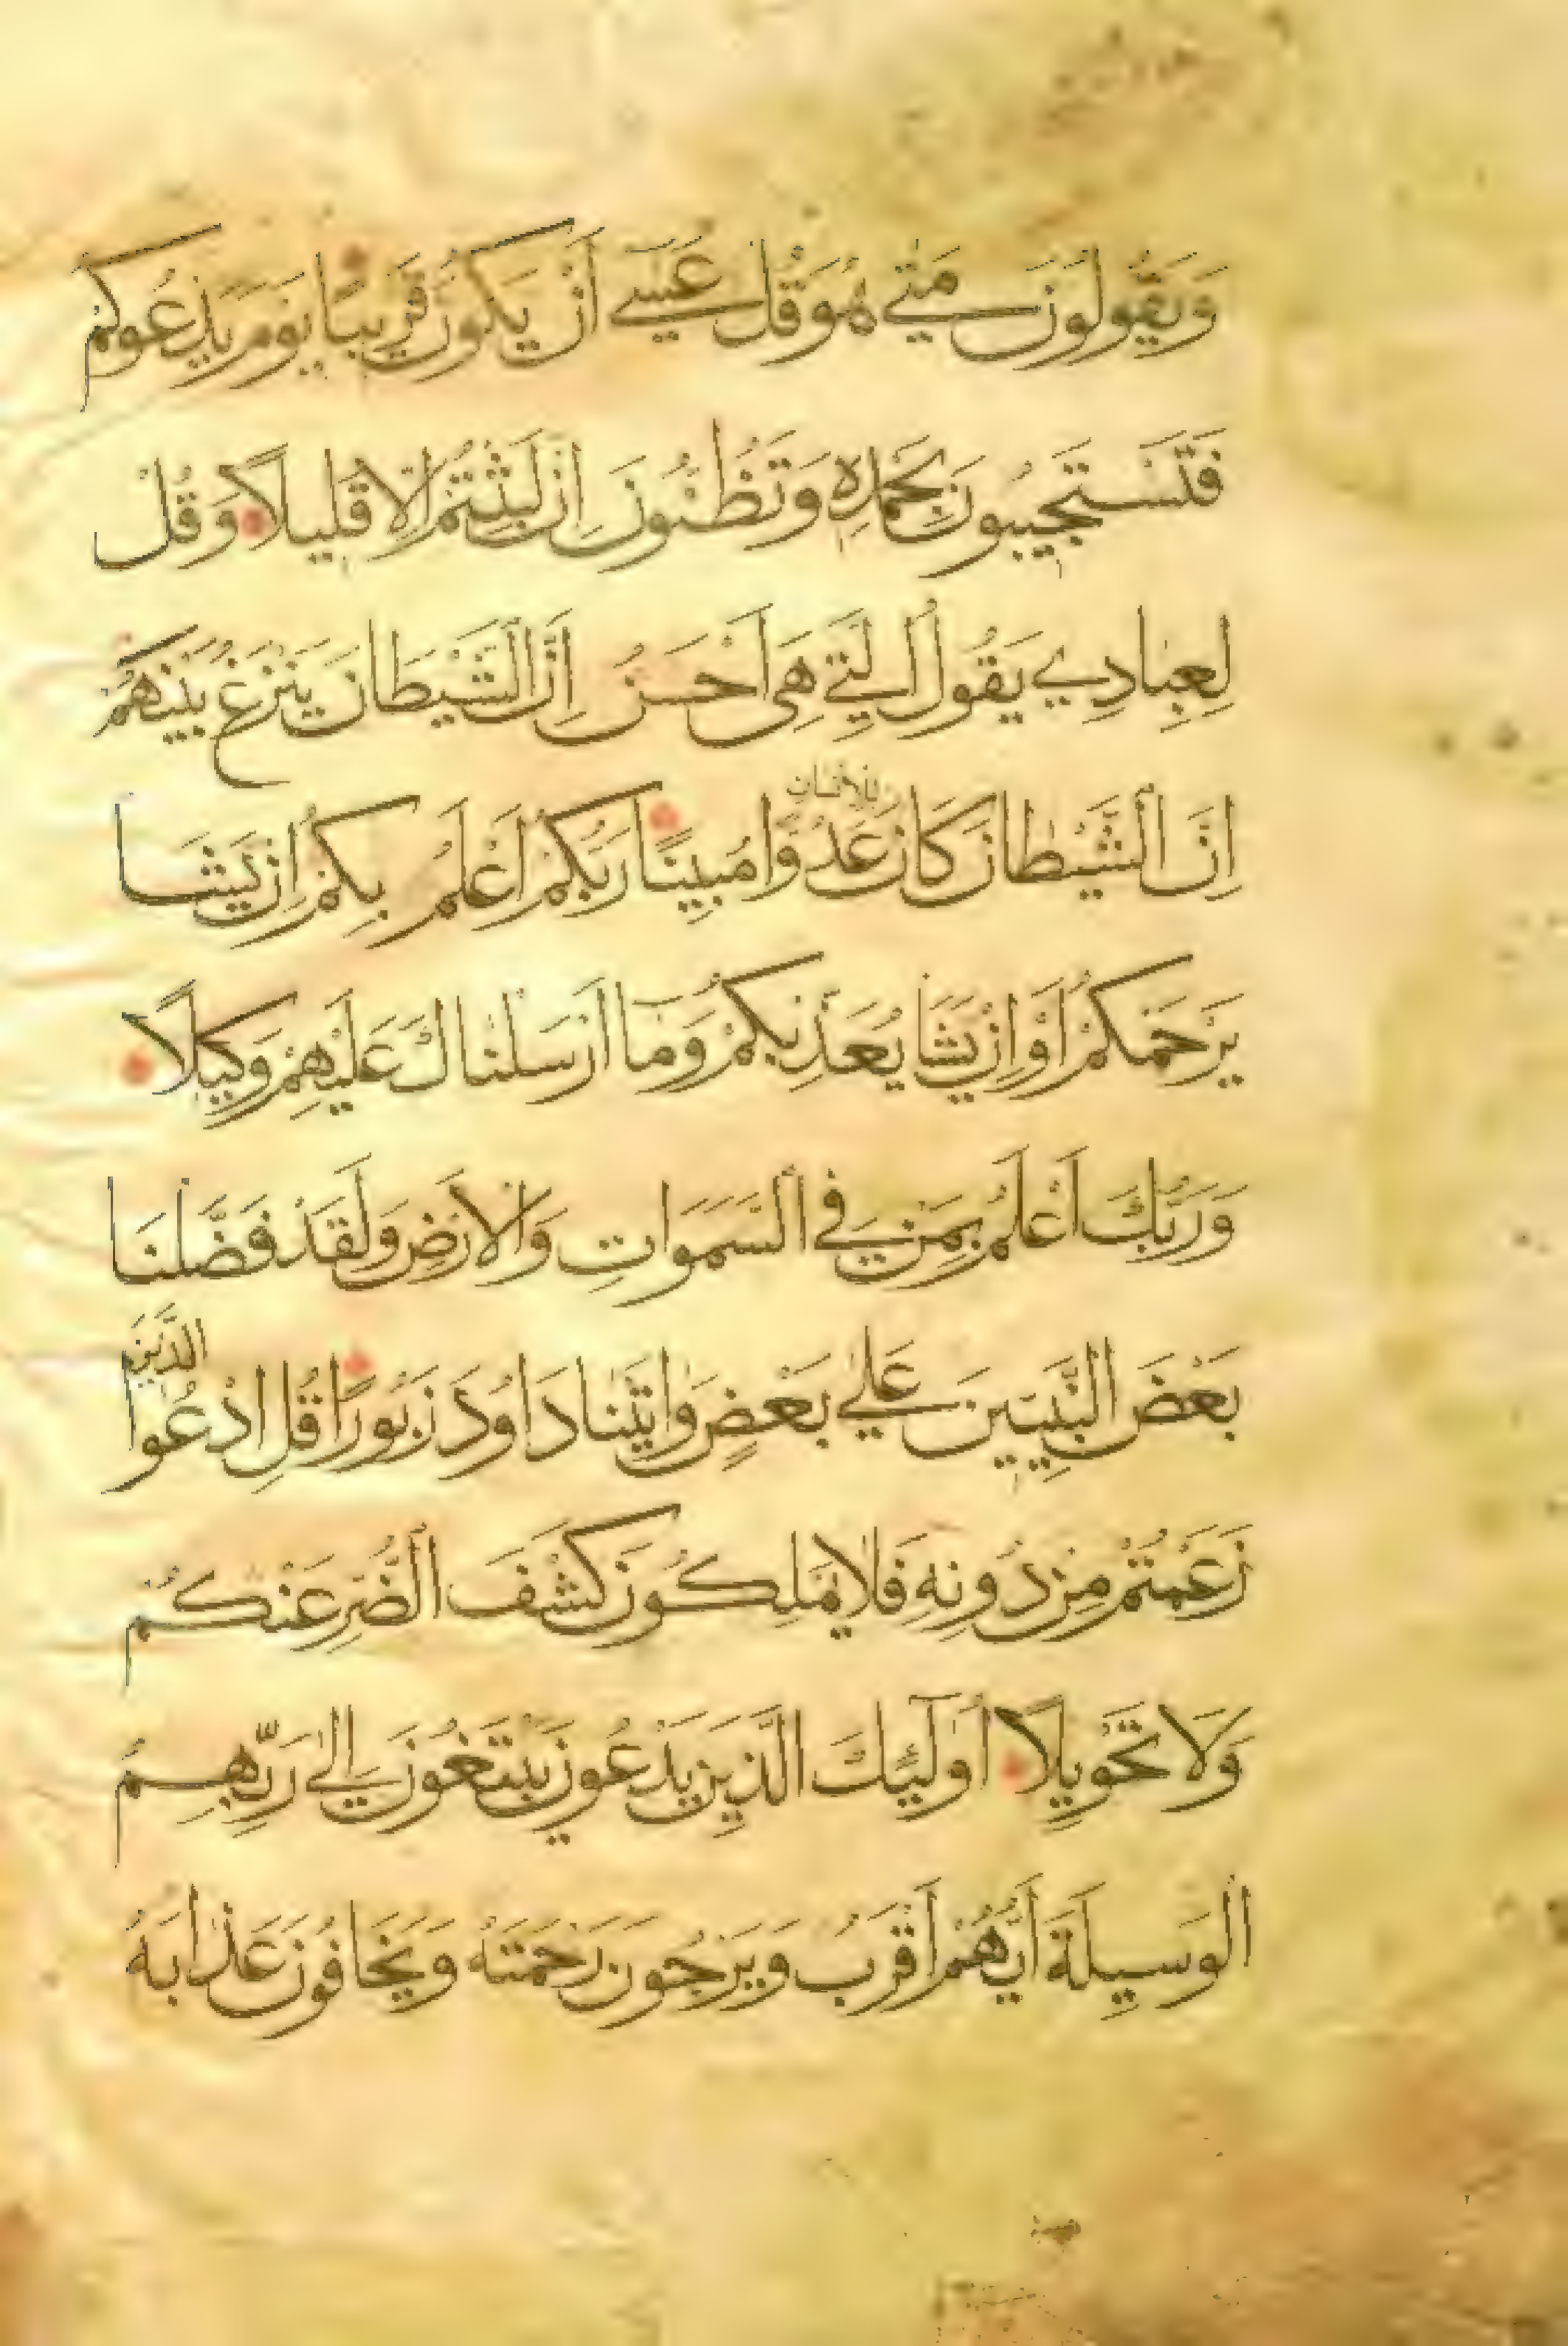 وَيَقُولُونَ مَتٰى هُوَ قُلْ عَسٰٓى أَنْ يَكُونَ قَرِيبًا يَوْمَ يَدْعُوكُمْ
فَتَسْتَجِيبُونَ بِحَمْدِهِ وَتَظُنُّونَ إِنْ لَبِثْتُمْ إِلَّا قَلِيلًا وَقُلْ
لِعِبَادِي يَقُولُ الَّتِي هِيَ أَحْسَنُ إِنَّ الشَّيْطَانَ يَنْزَغُ بَيْنَهُمْ
للانسان
إِنَّ الشَّيْطَانَ كَانَ عَدُوًّا مُبِينًا رَبُّكُمْ أَعْلَمُ بِكُمْ إِنْ يَشَا
يَرْحَمْكُمْ أَوْ إِنْ يَشَا يُعَذِّبْكُمْ وَمَا أَرْسَلْنَاكَ عَلَيْهِمْ وَكِيلًا
وَرَبُّكَ أَعْلَمُ بِمَنْ فِي السَّمَوَاتِ وَالْأَرْضِ وَلَقَدْ فَضَّلْنَا
الَّذِينَ
بَعْضَ النَّبِيِّينَ عَلٰى بَعْضٍ وَاٰتَيْنَا دَاوُدَ زَبُورًا قُلِ ادْعُوا
زَعَمْتُمْ مِنْ دُونِهِ فَلَا يَمْلِكُونَ كَشْفَ الضُّرِّ عَنْكُمْ
وَلَا تَحْوِيلًا أُولٰٓئِكَ الَّذِينَ يَدْعُونَ يَبْتَغُونَ إِلٰى رَبِّهِمُ
الْوَسِيلَةَ أَيُّهُمْ أَقْرَبُ وَيَرْجُونَ رَحْمَتَهُ وَيَخَافُونَ عَذَابَهُ